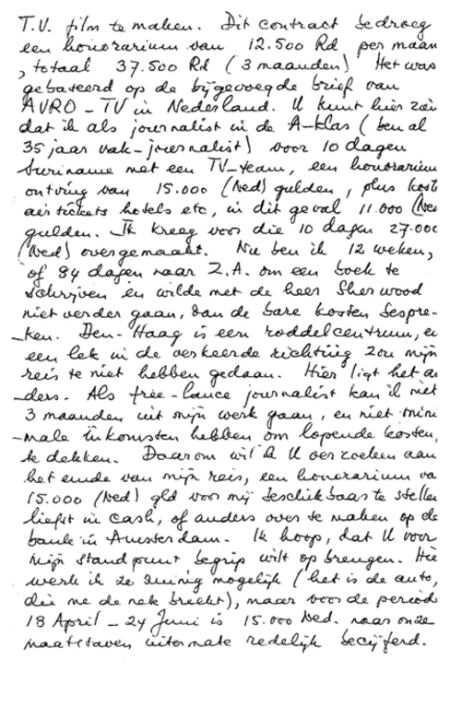 T.V. film te maken. Dit contract bedroeg
een honorarium van 12.500 Rd per maan
, totaal 37.500 Rd (3 maanden) Het was
gebaseerd op de bijgevoegde brief van
AVRO-TV in Nederland. U kunt hier zien
dat ik als journalist in de A-klas (ben al
35 jaar vak-journalist) voor 10 dagen
Suriname met een TV-team, een honorarium
ontving van 15.000 (Ned) gulden, plus kost
air tickets hotels etc, in dit geval 11.000 (Ned
gulden. Ik kreeg voor die 10 dagen 27.000
(Ned) overgemaakt. Nu ben ik 12 weken,
of 84 dagen naar Z.A. om een boek te
schrijven en wilde met de heer Sherwood
niet verder gaan, dan de bare kosten bespre-
-ken. Den-Haag is een roddelcentrum, en
een lek in de verkeerde richting zou mijn
reis te niet hebben gedaan. Hier ligt het an
-ders. Als free-lance journalist kan ik niet
3 maanden uit mijn werk gaan, en niet mini
-male inkomsten hebben om lopende kosten,
te dekken. Daarom wil ik U verzoeken aan
het einde van mijn reis, een honorarium va
15.000 (Ned) gld voor mij beschikbaar te stellen
liefst in cash, of anders over te maken op de
bank in Amsterdam. Ik hoop, dat U voor
mijn standpunt begrip wilt op brengen. Hie
werk ik zo zuinig mogelijk (het is de auto,
die me de nek breekt), maar voor de periode
18 April - 24 Juni is 15.000 Ned. naar onze
maatstaven uitermate redelijk becijferd.